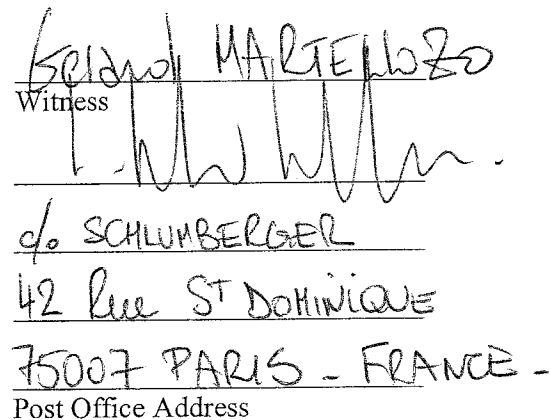 Gérard MARTELLOZO
Witness
c/o SCHLUMBERGER
42 Rue ST DOMINIQUE
75007 PARIS - FRANCE -
Post Office Address